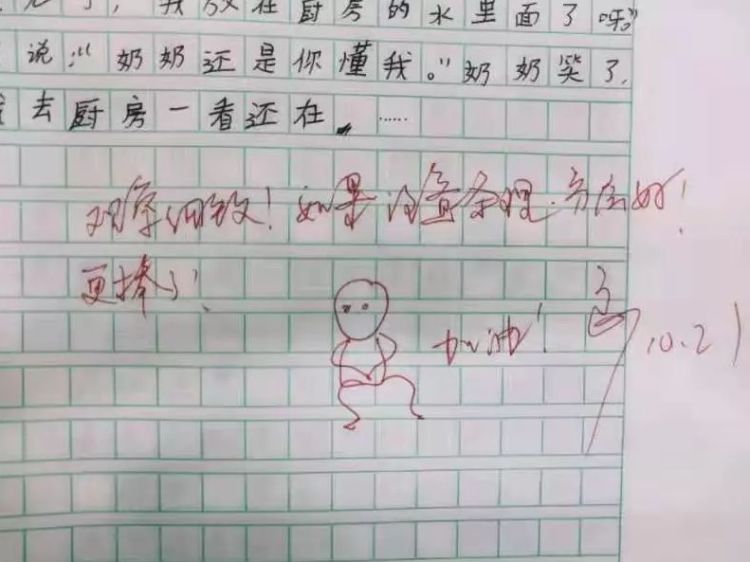 我放在厨房的水里面了呀。”
说:“奶奶还是你懂我。”奶奶笑了.
去厨房一看还在。……
观察细致!如果注意条理.书写好!
更棒了!
加油!
10.21